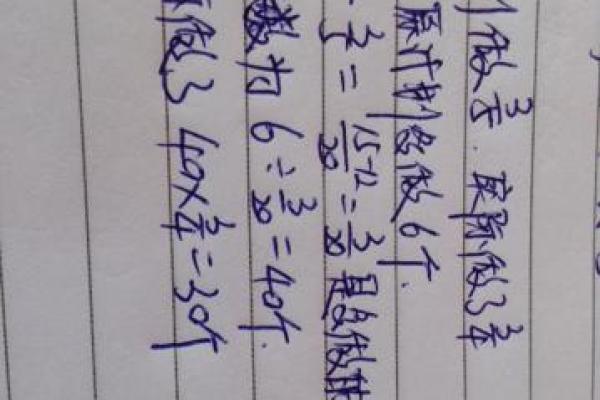 划做 3/5. 实际做了 3/4
原计划多做6个.
- 3/5 = (15-12)/20 = 3/20 是多做
数为 6÷3/20=40个.
做了 40×3/4=30个